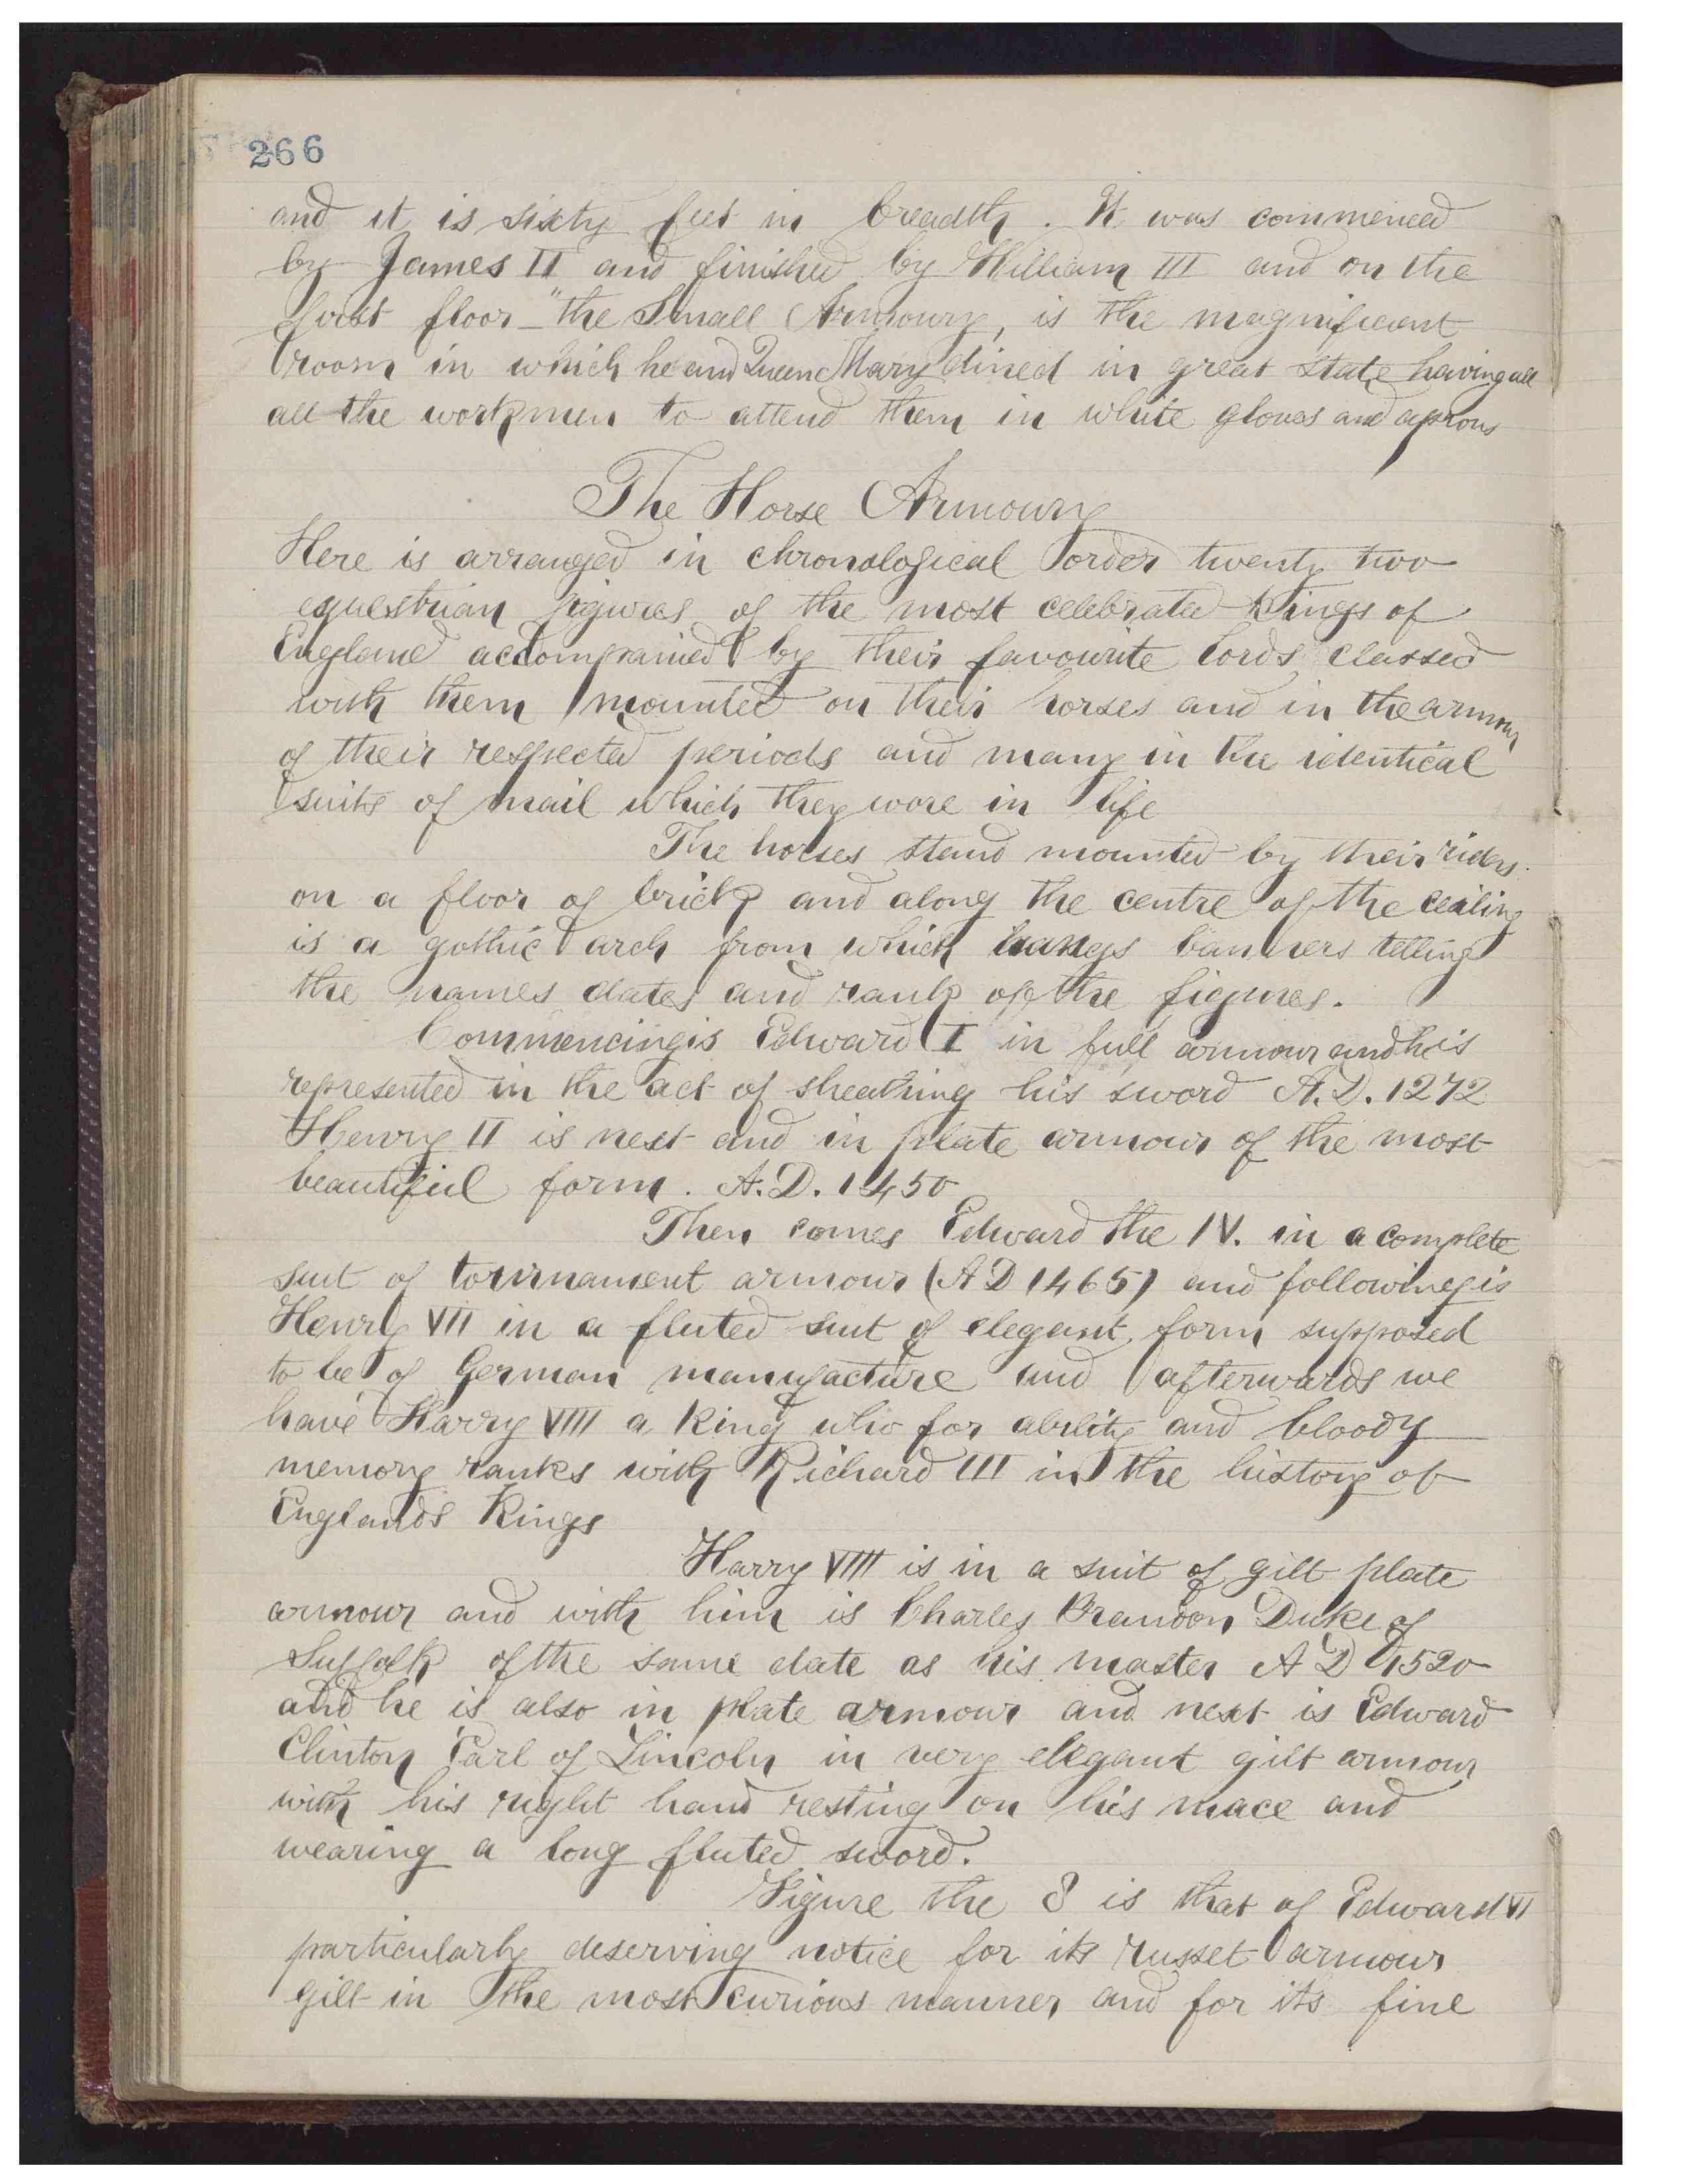 266
and it is sixty feet in breadth. It was commenced
by James II and finished by William III and on the
first floor - "the Small Armoury, is the magnificent
room in which he and Queen Mary dined in great state having all
all the workmen to attend them in white gloves and aprons
The Horse Armoury
Here is arranged in chronological order twenty two
equestrian figures of the most celebrated Kings of
England accompanied by their favourite lords classed
with them mounted on their horses and in the armour
of their respected periods and many in the identical
suits of mail which they wore in life
The horses stand mounted by their riders.
on a floor of brick and along the centre of the ceiling
is a gothic arch from which hangs banners telling
the names dates and rank of the figures.
Commencing is Edward I in full armour and his
represented in the act of sheathing his sword A.D. 1272
Henry II is next and in plate armour of the most
beautiful form. A.D. 1450
Then comes Edward the IV. in a complete
suit of tournament armour (AD 1465) and following is
Henry VII in a fluted suit of elegant form supposed
to be of German manufacture and afterwards we
have Harry VIII a King who for ability and bloody
memory ranks with Richard III in the history of
Englands Kings
Harry VIII is in a suit of gilt plate
armour and with him is Charles Brandon Duke of
Suffolk of the same date as his master AD 1520
and he is also in plate armour and next is Edward
Clinton Earl of Lincoln in very elegant gilt armour
with his right hand resting on his mace and
wearing a long fluted sword.
Figure the 8 is that of Edward VI
particularly deserving notice for its russet armour
gilt in the most curious manner and for its fine